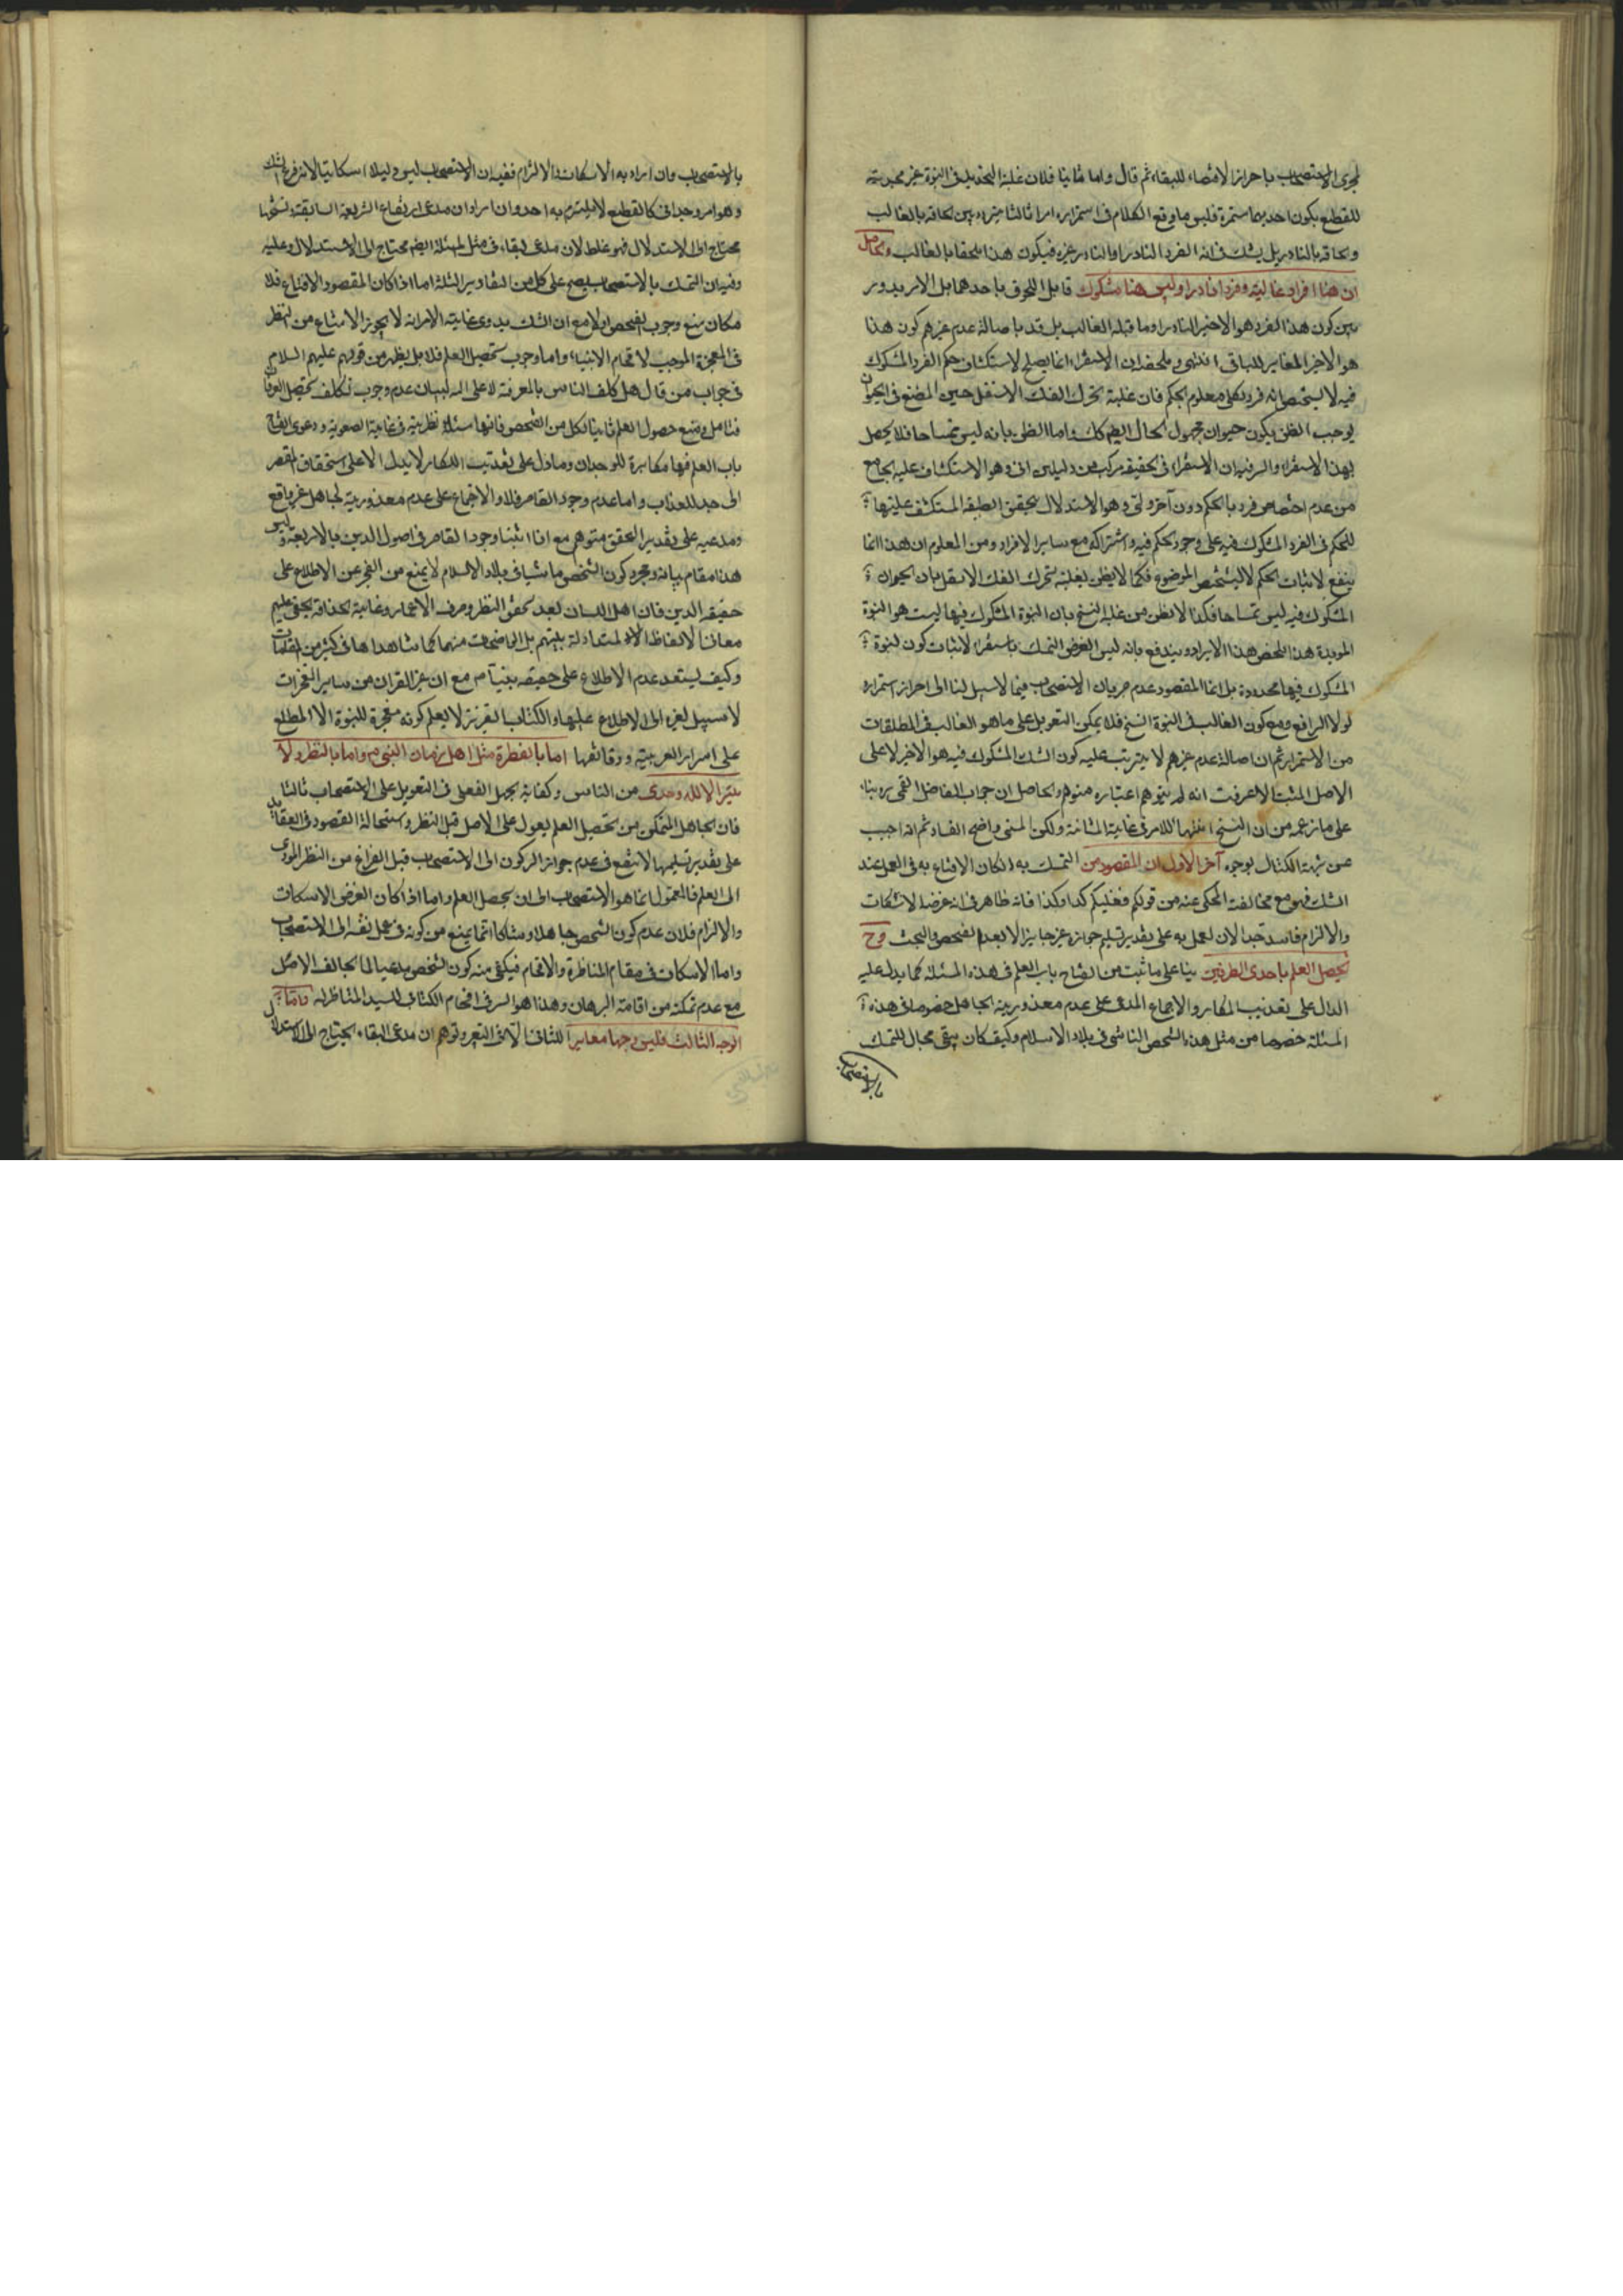 لمجرى الاستصحاب باحراز الاقتضاء للبقاء ثم قال واما ثانيا فلان غلبة التحديد في النبوة غير مجدية
للقطع بكون احديهما مستمرة فليس ما وقع الكلام في استمراره امرا ثالثا يتردد بين الحاقه بالغالب
والحاقه بالنادر بل يشك في انه الفرد النادر او النادر غيره فيكون هذا ملحقا بالغالب والحاصل
ان هنا افرادا غالبة وفردا نادرا وليس هنا مشكوك قابل اللحوق باحدهما بل الامر يدور
بين كون هذا الفرد هو الاخير النادر او ما قبله الغالب بل قد باصالة عدم غيرهم كون هذا
هو الاخير المغاير للباقي انتهى وملخصه ان الاستقراء انما يصلح لاستكشاف حكم الفرد المشكوك
فيه لا لتشخيص انه فرد لكلي معلوم الحكم فان غلبة تحرك الفك الاسفل حين المضغ في الحيوان
يوجب الظن بكون حيوان مجهول الحال ايضا كك واما الظن بانه ليس تمساحا فلا يحصل
بهذا الاستقراء والسر فيه ان الاستقراء في الحقيقة مركب من دليلين اني وهو الاستكشاف عليه الجامع
من عدم اختصاص فرد بالحكم دون آخر ولمي وهو الاستدلال بتحقق الطبيعة المستكشف عليتها
للحكم في الفرد المشكوك فيه على وجود الحكم فيه واشتراكه مع ساير الافراد ومن المعلوم ان هذا انما
ينفع لاثبات الحكم لا لتشخيص الموضوع فكما لا يظن لغلبة تحرك الفك الاسفل بان الحيوان
المشكوك فيه ليس تمساحا فكذا لا يظن من غلبة النسخ بان النبوة المشكوك فيها ليست هو النبوة
المؤبدة هذا ملخص هذا الايراد ويندفع بانه ليس الغرض التمسك باستقراء لاثبات كون النبوة
المشكوك فيها محدودة بل انما المقصود عدم جريان الاستصحاب فيما لا سبيل لنا الى احراز استمراره
لولا الرافع ومع كون الغالب في النبوة النسخ فلا يمكن التعويل على ما هو الغالب في المطلقات
من الاستمرار ثم ان اصالة عدم غيرهم لا يترتب عليه كون الشك المشكوك فيه هو الاخر لا على
الاصل المثبت لا عرفت انه لم يتوهم اعتباره متوهم والحاصل ان جواب الفاضل القمي ره بناء
على ما زعمه من ان النسخ انتهاء للامر في غاية المتانة ولكن المبنى واضح الفساد ثم انه اجيب
عن شبهة الكتابي بوجوه آخر الاول ان المقصود من التمسك به ان كان الاقناع به في العمل عند
الشك فهو مع مخالفته للمحكي عنه من قولكم فعليكم كذا وكذا فانه ظاهر في انه غرضه الاسكات
والالزام فاسد جدا لان العمل به على تقدير تسليم جوازه غير جايز الا بعد الفحص والبحث وح
يحصل العلم باحدى الطرفين بناء على ما ثبت من انفتاح باب العلم في هذه المسئلة كما يدل عليه
الدال على تعذيب الكفار والاجماع المدعى على عدم معذورية الجاهل خصوصا في هذه
المسئلة خصوصا من مثل هذا الشخص الناشى في بلاد الاسلام وكيف كان يبقى مجال للتمسك
بالاستصحاب
بالاستصحاب فان اراد به الاسكات والالزام ففيه ان الاستصحاب ليس دليلا اسكاتيا لانه فرع الشك
وهو امر وجداني كالقطع لا يلتزم به احد وان اراد ان مدعى ارتفاع الشريعة السابقة ونسخها
محتاج الى الاستدلال فهو غلط لان مدعى البقاء في مثل المسئلة ايضا محتاج الى الاستدلال وعليه
وفيه ان التمسك بالاستصحاب يصح على كل من التقادير الثلثة اما اذا كان المقصود الاقناع فلا
مكان منع وجوب الفحص اولا مع ان الشك بدوى غاية الامر انه لا يجوز الامتناع من النظر
في المعجزة الموجب لافحام الانبياء واما وجوب تحصيل العلم فلا بل يظهر من قولهم عليهم السلام
في جواب من قال هل كلف الناس بالمعرفة لا على الله البيان عدم وجوب تكلف تحصيل العرفان
فتامل ومنع حصول العلم ثانيا لكل من الشخص فانها مسئلة نظرية في غاية الصعوبة ودعوى انفتاح
باب العلم فيها مكابرة للوجدان وما دل على تعذيب الكفار لا يدل الا على استحقاق المقصر
الى حد للعذاب واما عدم وجود القاصر فلا والاجماع على عدم معذورية الجاهل غير واقع
ومدعيه على تقدير التحقق متوهم مع انا اثبتنا وجود القاصر في اصول الدين بالاربعة وليس
هذا مقام بيانه ومجرد كون الشخص ناشيا في بلاد الاسلام لا يمنع من العجز عن الاطلاع على
حقيقة الدين فان اهل اللسان بعد تحقق النظر وصرف الاعمار وغاية الحذاقة يخفى عليهم
معاني الالفاظ المتعادلة بينهم بل الواضحات منهما كما شاهدناها في كثير من المقامات
وكيف يستبعد عدم الاطلاع على حقيقة نبينا ص مع ان غير القران من ساير المعجزات
لا سبيل لغيره الى الاطلاع عليها والكتاب العزيز لا يعلم كونه معجزة للنبوة الا المطلع
على اسرار العربية ودقائقها اما بالفطرة مثل اهل زمان النبي ص واما بالنظر ولا
يتيسر الا للاوحدى من الناس وكفاية الجهل الفعلى في التعويل على الاستصحاب ثالثا
فان الجاهل المتمكن من تحصيل العلم يعول على الاصل قبل النظر واستحالة القصور في العقايد
على تقدير تسليمها لا ينفع في عدم جواز الركون الى الاستصحاب قبل الفراغ من النظر المودى
الى العلم فالمعول انما هو الاستصحاب الى ان يحصل العلم واما اذا كان الغرض الاسكات
والالزام فلان عدم كون الشخص جاهلا وشاكا انما يمنع من كونه في عمل نفسه الى الاستصحاب
واما الاسكات في مقام المناظرة والافحام فيكفى منه كون الشخص مدعيا لما يخالف الاصل
مع عدم تمكنه من اقامة البرهان وهذا هو السر في افحام الكتابي للسيد المناظر له واما
الوجه الثالث فليس وجها مغايرا للثاني وتوهم ان مدعى البقاء يحتاج الى الاستدلال